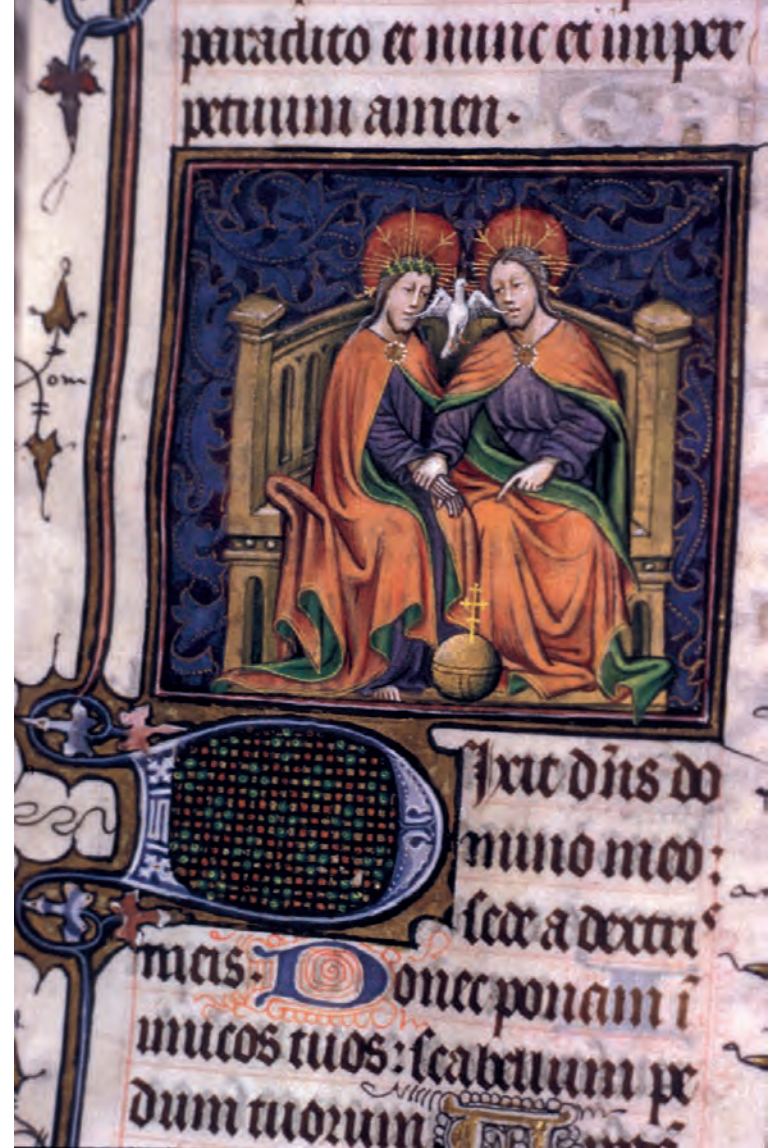 paraclito et nunc et imper
petuum amen.
Dixit dn̄s do
mino meo:
sede a dextris
meis. Donec ponam ī
imicos tuos: scabellum pe
dum tuorum